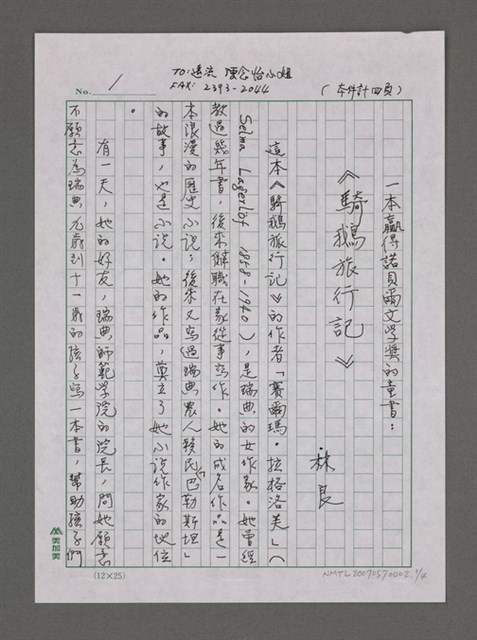 TO:遠流 陳念怡小姐
FAX: 2393-2044
No. 1
(本件計四頁)
一本贏得諾貝爾文學獎的童書:
《騎鵝旅行記》
林良
這本《騎鵝旅行記》的作者「賽爾瑪·拉格洛芙」(
Selma Lagerlöf 1858-1940),是瑞典的女作家。她曾經
教過幾年書,後來辭職在家從事寫作。她的成名作品是一
本浪漫的歷史小說;後來又寫過瑞典農人移民「巴勒斯坦」
的故事,也是小說。她的作品,奠立了她小說作家的地位
。
有一天,她的好友,瑞典師範學院的院長,問她願意
不願意為瑞典九歲到十一歲的孩子寫一本書,幫助孩子們
美加美
(12×25)
NMTL20070570002. 1/4